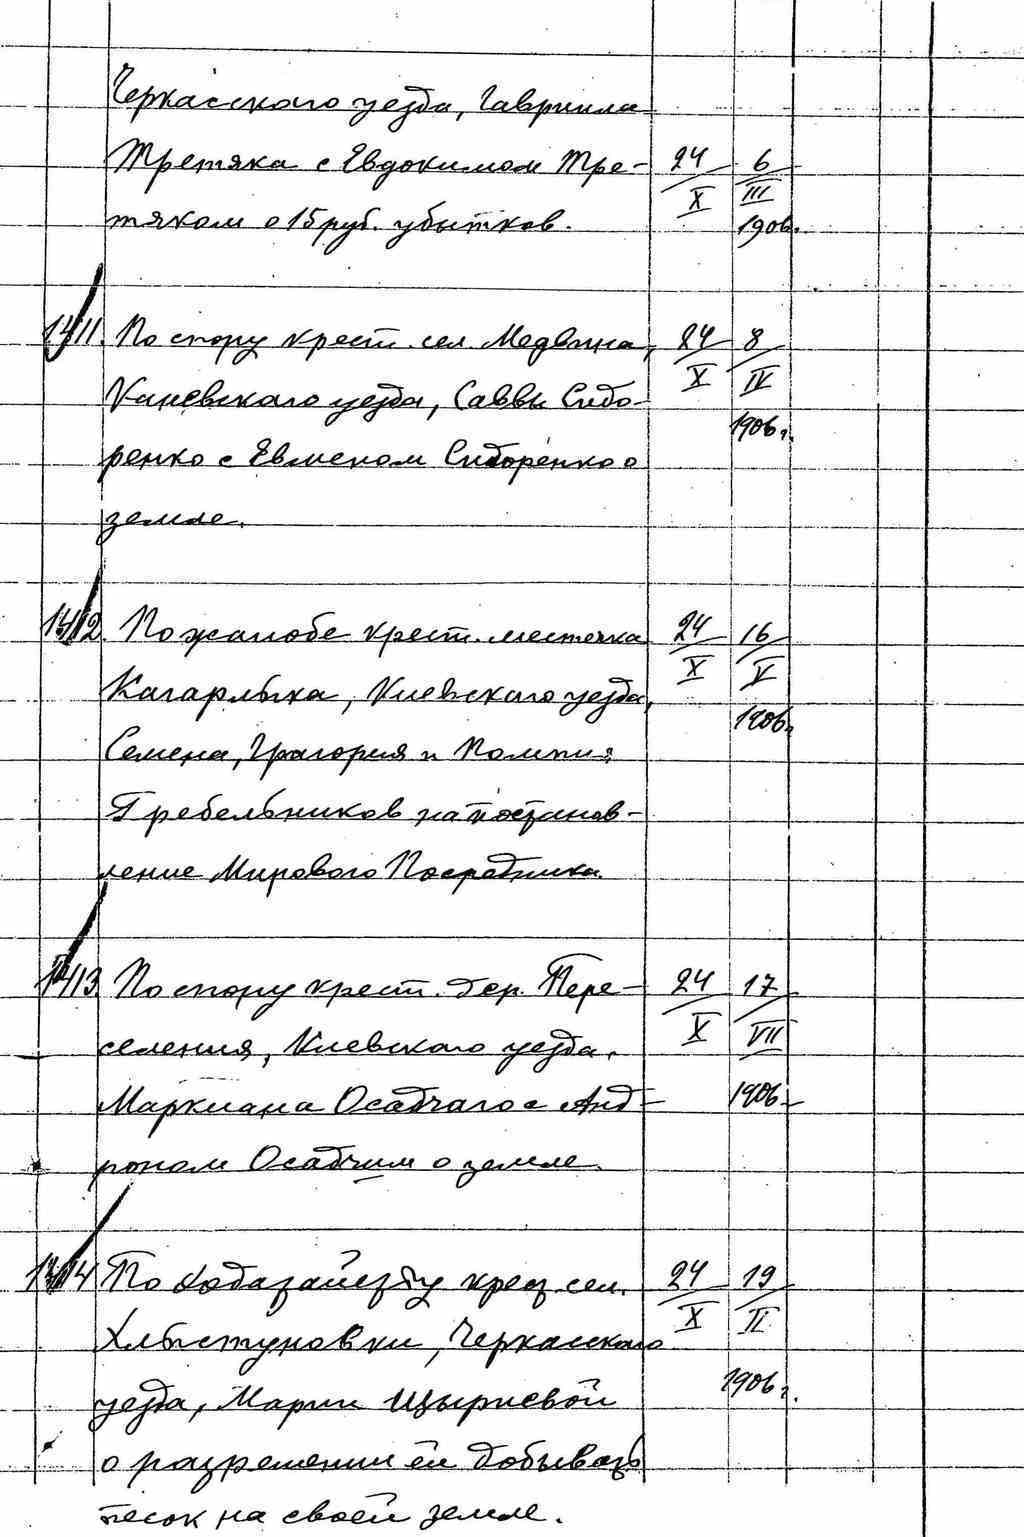 Черкасского уезда, Гавриила
Третяка с Евдокимом Тре- 24/X 6/III
тяком о 15 руб. убытков. 1906г.
1411. По спору крест. сел. Медвина, 24/X 8/IV
Каневского уезда, Саввы Сидо- 1906г.
ренко с Евменом Сидоренко о
земле.
1412. По жалобе крест. местечка 24/X 16/V
Кагарлыка, Киевского уезда, 1906г.
Семена, Григория и
Гребельников на постанов-
ление Мирового Посредника.
1413. По спору крест. дер. Пере- 24/X 17/VII
селения, Киевского уезда,
Маркиана Осадчаго с Анд- 1906г.
роном Осадчим о земле.
1414 По ходатайству крест. сел. 24/X 19/II
Хлыстуновки, Черкасского
уезда, Марии 1906г.
о разрешении ей добывать
песок на своей земле.